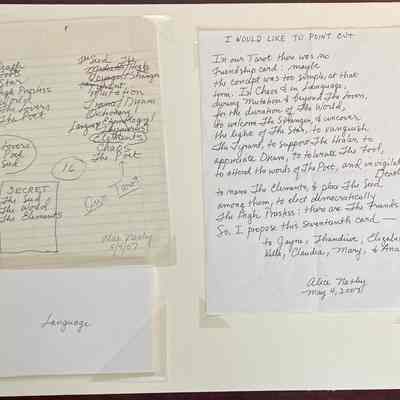 Star
High Priestess
World
Lovers
The Poet
The Seed
Stranger
Mutation
Dream
Language
Chaos
The Poet
Lovers
Poet
Seed
16
SECRET
The Seed
The World
The Elements
Alice Notley
5/4/07
Language
I WOULD LIKE TO POINT OUT
In our Tarot there was no
Friendship card; maybe
the concept was too simple, at that
time. In Chaos & in Language,
during Mutation & beyond The Lovers,
for the duration of The World,
to welcome The Stranger, & uncover
the light of The Star, to vanquish
The Tyrant, to support The Healer, to
appreciate Dream, to tolerate The Fool,
to attend the words of The Poet, and invigilate
Death
to name The Elements, & place The Seed
among them, to elect democratically
The High Priestess: there are The Friends
So, I propose this seventeenth card —
to Jayne, Thandiwe, Elizabe
Kelle, Claudia, Mary, & Ana
Alice Notley
May 4, 2007